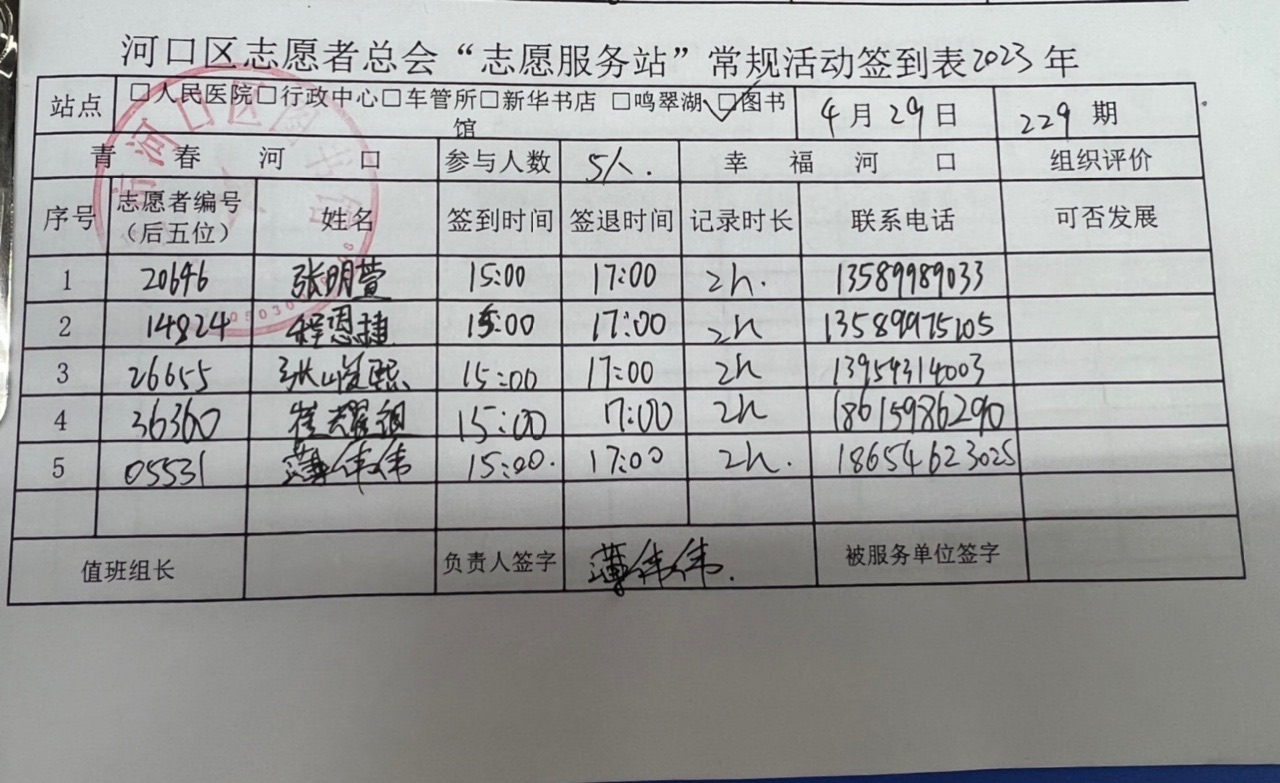 河口区志愿者总会“志愿服务站”常规活动签到表2023年
站点 □人民医院□行政中心□车管所□新华书店 □鸣翠湖 ☑图书馆 4月29日 229期
青春河口 参与人数 5人. 幸福河口 组织评价
序号 志愿者编号（后五位） 姓名 签到时间 签退时间 记录时长 联系电话 可否发展
1 20646 张明萱 15:00 17:00 2h. 13589989033
2 14824 程恩捷 15:00 17:00 2h 13589975105
3 26655 张峻熙 15:00 17:00 2h 13954314003
4 36360 崔耀祖 15:00 17:00 2h 18615986290
5 05531 薄伟伟 15:00. 17:00 2h. 18654623025
值班组长 负责人签字 薄伟伟. 被服务单位签字